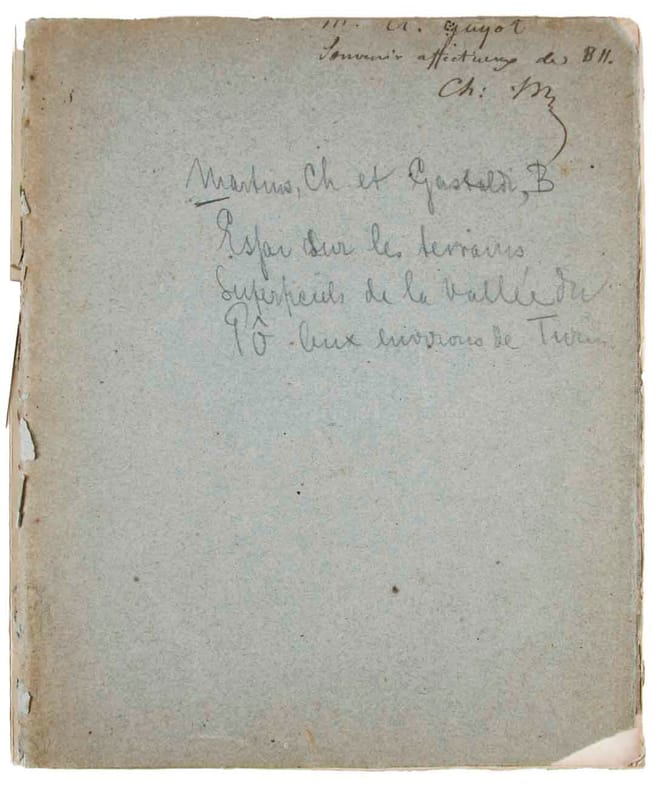 M. A. Guyot
Souvenir affectueux de
Ch: M
Martins, Ch et Gastaldi, B
Essai sur les terrains
Superficiels de la Vallée du
Pô aux environs de Turin